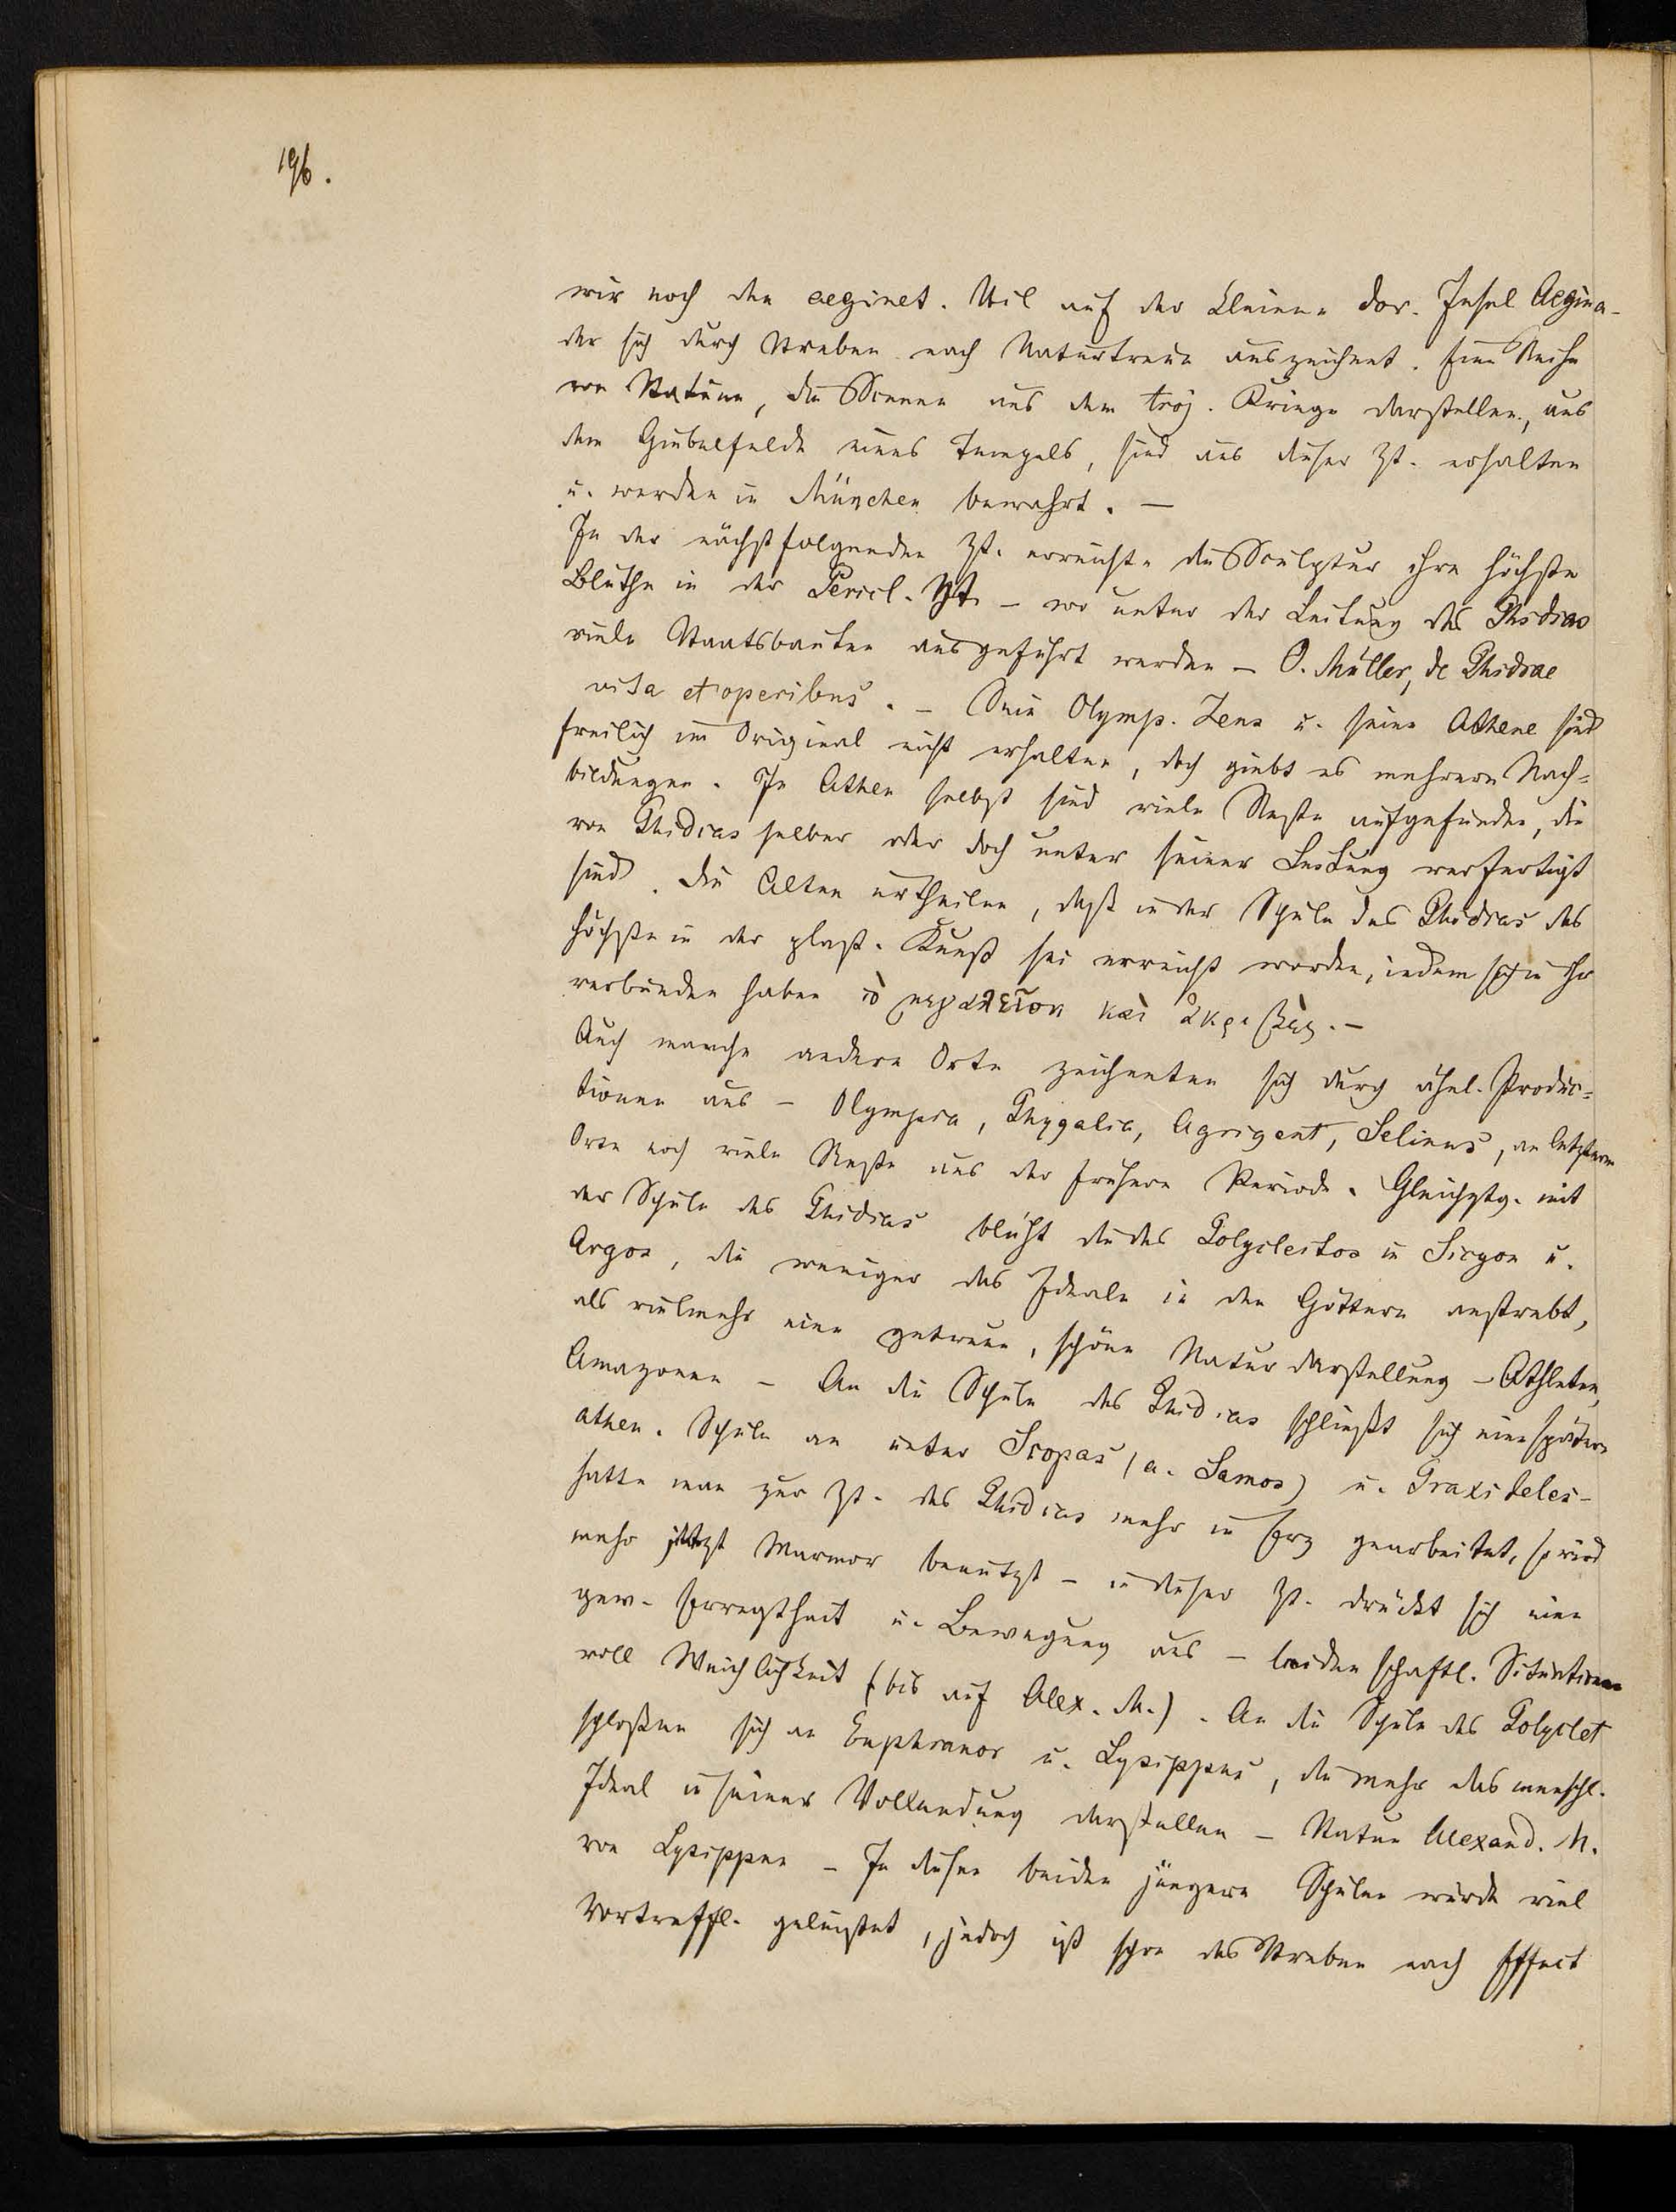 196.
wir noch den aeginet. Stil auf der kleinen dor. Insel Aegina -
der sich durch Streben nach Naturtreue auszeichnet. Eine Reihe
von Statuen, die Scenen aus dem troj. Kriege darstellen, aus
dem Giebelfelde eines Tempels, sind aus dieser Zt. erhalten
u. werden in München bewahrt. —
In der nächstfolgenden Zt. erreichte die Sculptur ihre höchste
Blüthe in der Pericl. Zt. – wo unter der Leitung des Phidias
viele Staatsbauten ausgeführt werden – O. Müller, de Phidiae
vita et operibus. – Sein Olymp. Zeus u. seine Athene sind
freilich im Original nicht erhalten, doch giebt es mehrere Nach=
bildungen. In Athen selbst sind viele Reste aufgefunden, die
von Phidias selber oder doch unter seiner Leitung verfertigt
sind. Die Alten urtheilen, daß in der Schule des Phidias das
höchste in der plast. Kunst sei erreicht worden, indem sich in ihr
verbunden haben τὸ μεγαλεῖον καὶ ἀκριβὲς. –
Auch manche andere Orte zeichneten sich durch ähnl. Produc=
tionen aus – Olympia, Phygalia, Agrigent, Selinus, an letzterem
Orte noch viele Reste aus der frühern Periode. Gleichztg. mit
der Schule des Phidias blüht die des Polycleitos in Sicyon u.
Argos, die weniger das Ideale in den Göttern anstrebt,
als vielmehr eine getreue, schöne Naturdarstellung – Athleten,
Amazonen – An die Schule des Phidias schließt sich eine spätere
athen. Schule an unter Scopas (a. Samos) u. Praxiteles –
hatte man zur Zt. des Phidias mehr in Erz gearbeitet, so wird
mehr jetzt Marmor benutzt – in dieser Zt. drückt sich eine
gew. Erregtheit u. Bewegung aus – leidenschaftl. Situationen
voll Weichlichkeit (bis auf Alex. M.). An die Schule des Polyclet
schloßen sich an Euphranor u. Lysippus, die mehr das menschl.
Ideal in seiner Vollendung darstellen – Statue Alexand. M.
von Lysippus – In diesen beiden jüngern Schulen wurde viel
Vortreffl. geleistet, jedoch ist schon das Streben nach Effect